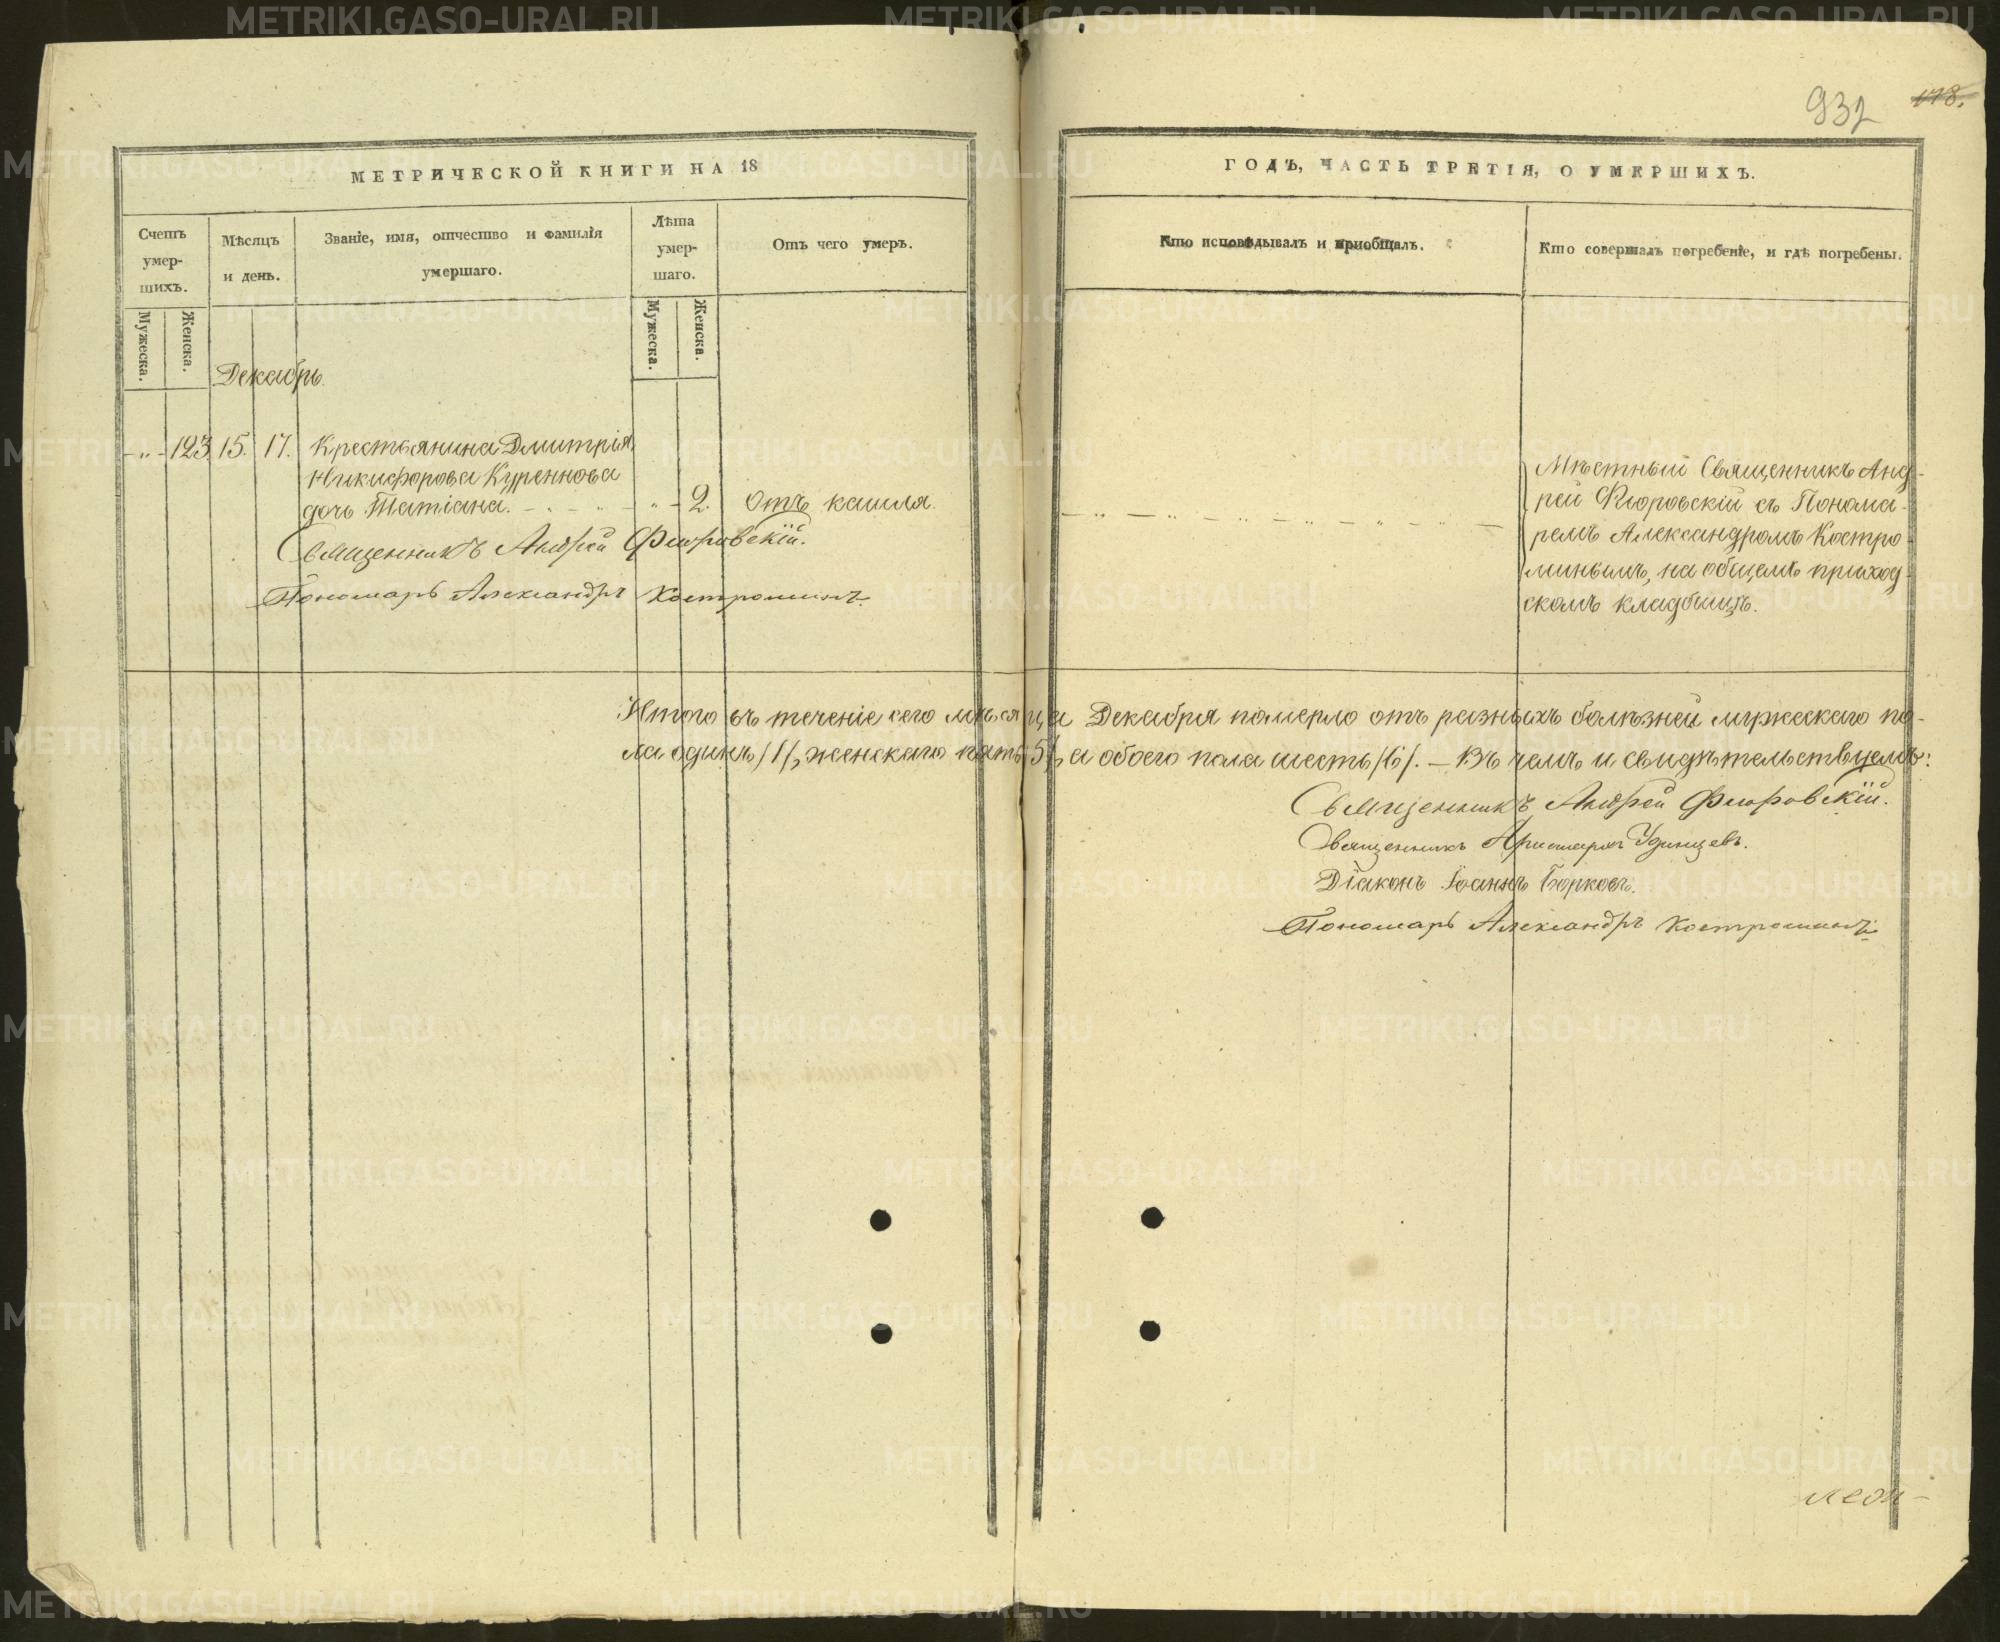 932 118.
МЕТРИЧЕСКОЙ КНИГИ НА 18
ГОДЪ, ЧАСТЬ ТРЕТІЯ, О УМЕРШИХЪ.
Счетъ умер-шихъ.
Мужеска.
Женска.
Мѣсяцъ и день.
Званіе, имя, отчество и фамилія умершаго.
Лѣта умер-шаго.
Мужеска.
Женска.
Отъ чего умеръ.
Кто исповѣдывалъ и приобщалъ.
Кто совершалъ погребеніе, и гдѣ погребены.
Декабрь.
- „ - 123. 15. 17. Крестьянина Дмитрія
Никифорова Куреннова
дочь Татіана. - „ - 2. Отъ кашля.
Священникъ Андрей Флоровскій.
Пономарь Александръ Костроминъ.
Мѣстный Священникъ Анд-
рей Флоровскій съ Понома-
ремъ Александромъ Костро-
минымъ, на общемъ приход-
скомъ кладбищѣ.
Итого въ теченіе сего мѣсяца Декабря померло отъ разныхъ болѣзней мужескаго по-
ла одинъ /1/, женскаго пять /5/, а обоего пола шесть /6/. – Въ чемъ и свидѣтельствуемъ:
Священникъ Андрей Флоровскій.
Священникъ Аристархъ Удинцевъ.
Діаконъ Іоаннъ Борковъ.
Пономарь Александръ Костроминъ.
METRIKI.GASO-URAL.RU